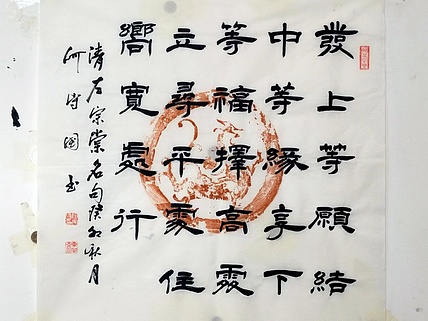 發上等願結
中等緣享下
等福擇高處
立尋平處住
嚮寬處行
清左宗棠名句癸卯秋月
何國书